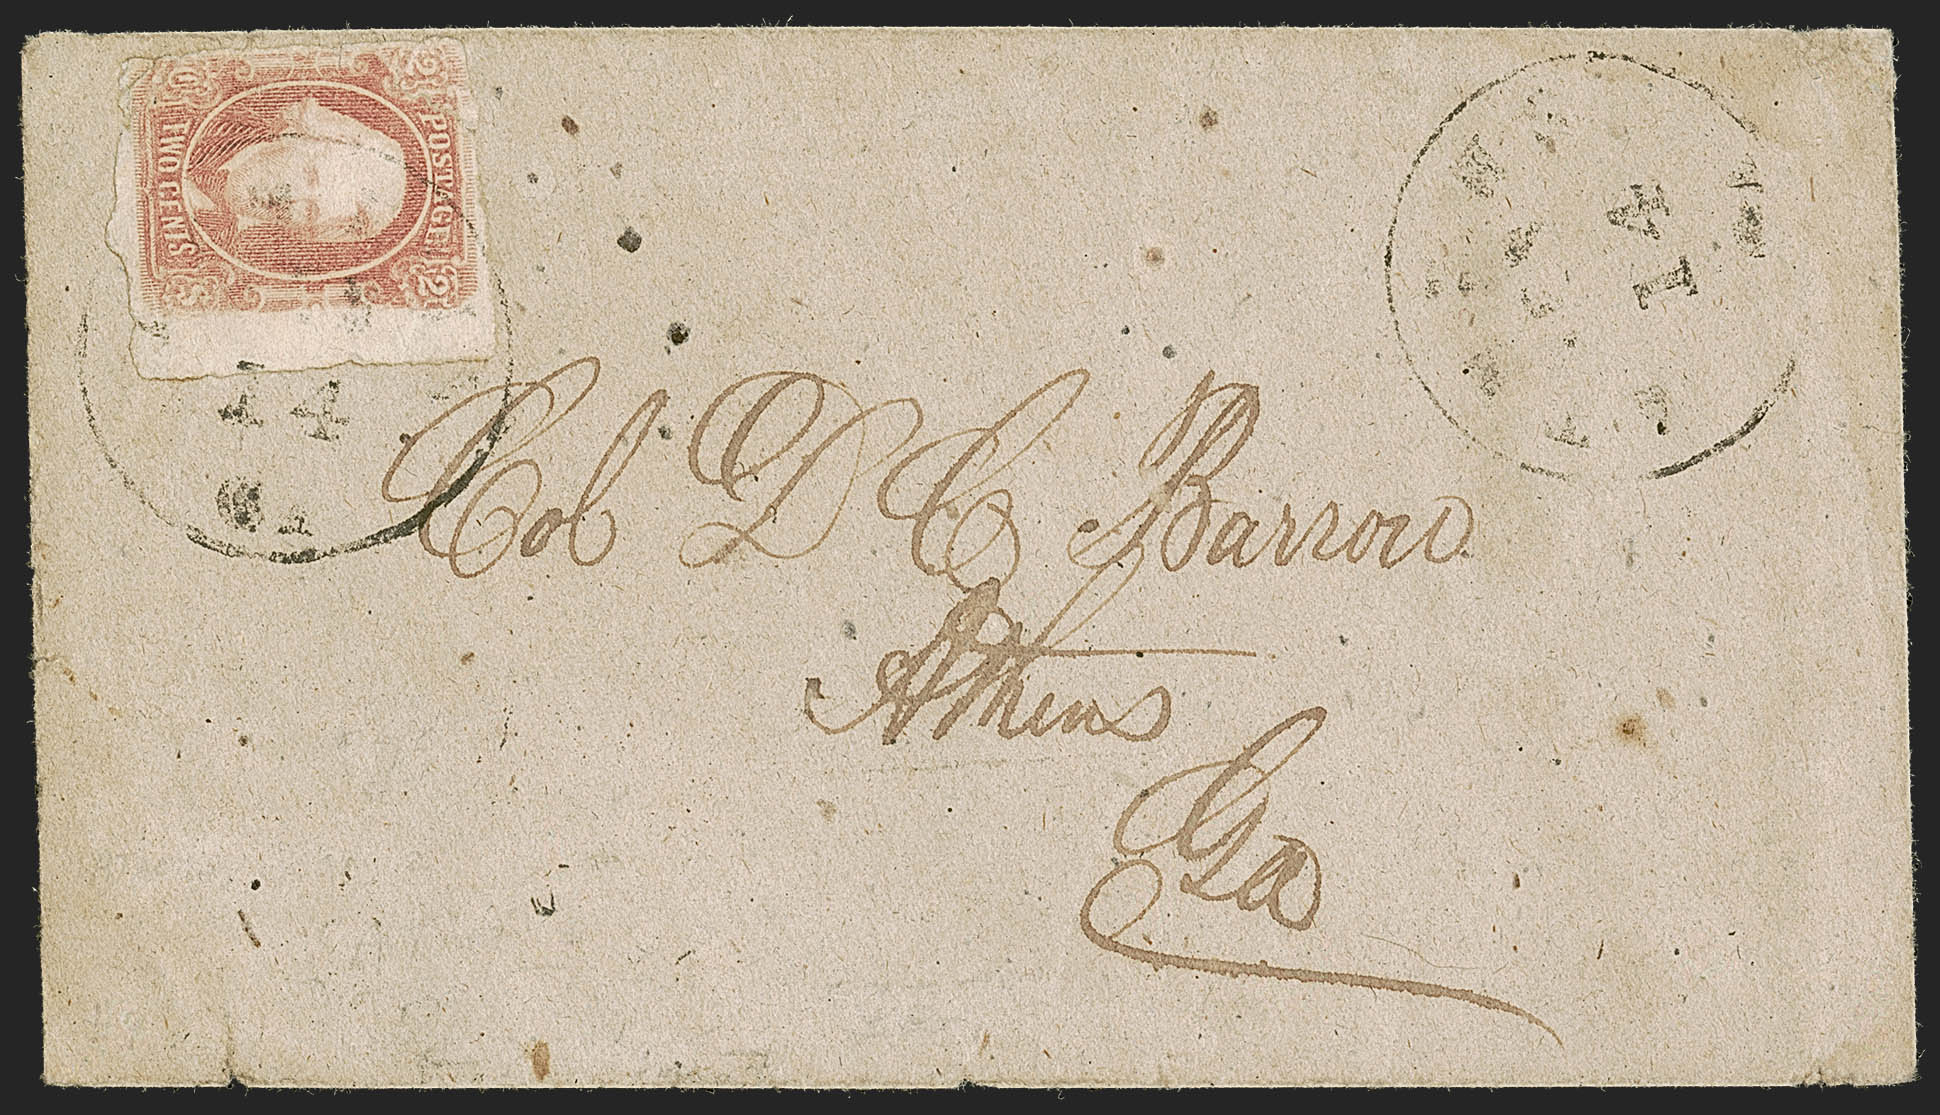 2 2
POSTAGE
TWO CENTS
C S
14
Col D C Barrow
Athens
Ga